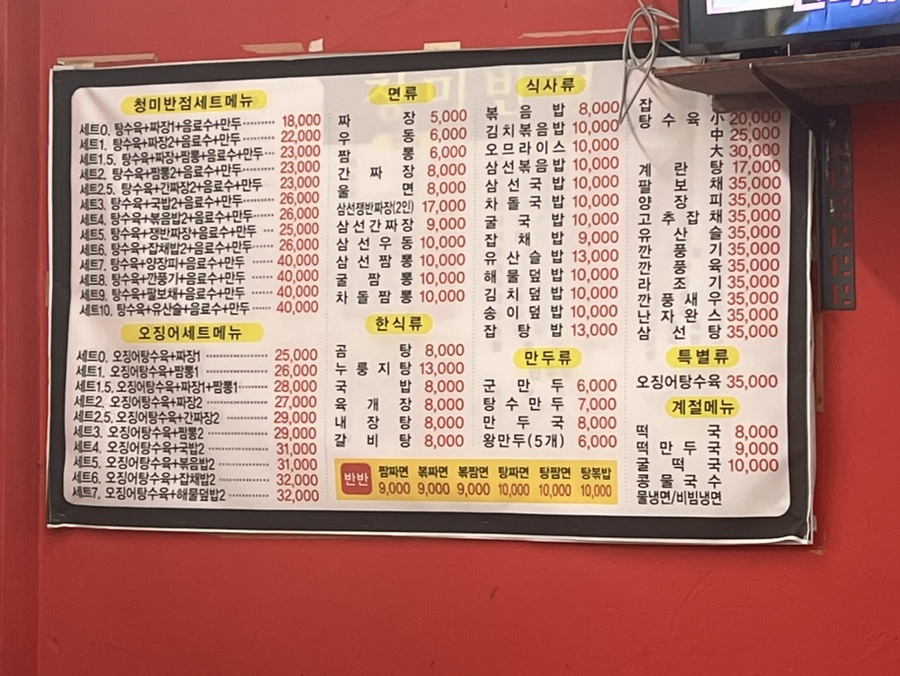 청미반점세트메뉴
세트0. 탕수육+짜장1+음료수+만두 18,000
세트1. 탕수육+짜장2+음료수+만두 22,000
세트1.5. 탕수육+짜장+짬뽕+음료수+만두 23,000
세트2. 탕수육+짬뽕2+음료수+만두 23,000
세트2.5. 탕수육+간짜장2+음료수+만두 23,000
세트3. 탕수육+국밥2+음료수+만두 26,000
세트4. 탕수육+볶음밥2+음료수+만두 26,000
세트5. 탕수육+쟁반짜장+음료수+만두 25,000
세트6. 탕수육+잡채밥2+음료수+만두 26,000
세트7. 탕수육+양장피+음료수+만두 40,000
세트8. 탕수육+깐풍기+음료수+만두 40,000
세트9. 탕수육+팔보채+음료수+만두 40,000
세트10. 탕수육+유산슬+음료수+만두 40,000
오징어세트메뉴
세트0. 오징어탕수육+짜장1 25,000
세트1. 오징어탕수육+짬뽕1 26,000
세트1.5. 오징어탕수육+짜장1+짬뽕1 28,000
세트2. 오징어탕수육+짜장2 27,000
세트2.5. 오징어탕수육+간짜장2 29,000
세트3. 오징어탕수육+짬뽕2 29,000
세트4. 오징어탕수육+국밥2 31,000
세트5. 오징어탕수육+볶음밥2 31,000
세트6. 오징어탕수육+잡채밥2 32,000
세트7. 오징어탕수육+해물덮밥2 32,000
면류
짜장 5,000
우동 6,000
짬뽕 6,000
간짜장 8,000
울면 8,000
삼선쟁반짜장(2인) 17,000
삼선간짜장 9,000
삼선우동 10,000
삼선짬뽕 10,000
굴짬뽕 10,000
차돌짬뽕 10,000
한식류
곰탕 8,000
누룽지탕 13,000
국밥 8,000
육개장 8,000
내장탕 8,000
갈비탕 8,000
식사류
볶음밥 8,000
김치볶음밥 10,000
오므라이스 10,000
삼선볶음밥 10,000
삼선국밥 10,000
차돌국밥 10,000
굴국밥 10,000
잡채밥 9,000
유산슬밥 13,000
해물덮밥 10,000
김치덮밥 10,000
송이덮밥 10,000
잡탕밥 13,000
만두류
군만두 6,000
탕수만두 7,000
만두국 8,000
왕만두(5개) 6,000
반반
짬짜면 볶짜면 볶짬면 탕짜면 탕짬면 탕볶밥
9,000 9,000 9,000 10,000 10,000 10,000
잡
탕수육 小 20,000
中 25,000
大 30,000
계란탕 17,000
팔보채 35,000
양장피 35,000
고추잡채 35,000
유산슬 35,000
깐풍기 35,000
깐풍육 35,000
라조기 35,000
깐풍새우 35,000
난자완스 35,000
삼선탕 35,000
특별류
오징어탕수육 35,000
계절메뉴
떡국 8,000
떡만두국 9,000
굴떡국 10,000
콩물국수
물냉면/비빔냉면